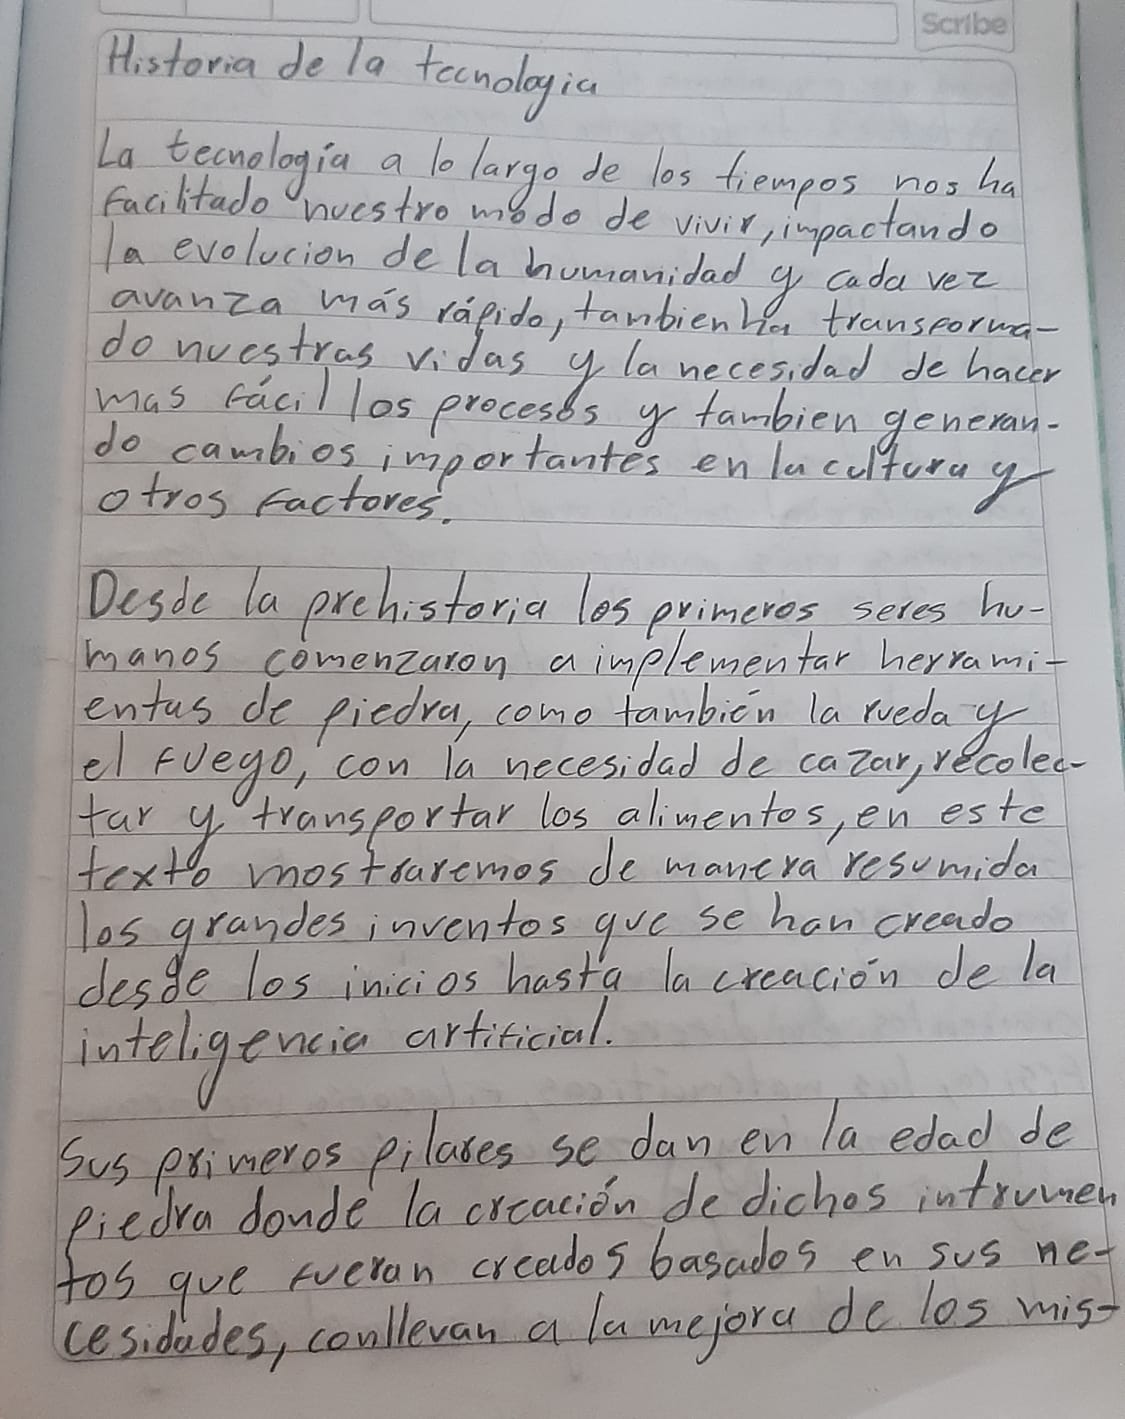 Scribe
Historia de la tecnologia
La tecnología a lo largo de los tiempos nos ha
facilitado nuestro modo de vivir, impactando
la evolucion de la humanidad y cada vez
avanza más rápido, tambien ha transforma-
do nuestras vidas y la necesidad de hacer
mas fácil los procesos y tambien generan-
do cambios importantes en la cultura y
otros factores.
Desde la prehistoria los primeros seres hu-
manos comenzaron a implementar herrami-
entas de piedra, como también la rueda y
el fuego, con la necesidad de cazar, recolec-
tar y transportar los alimentos, en este
texto mostraremos de manera resumida
los grandes inventos que se han creado
desde los inicios hasta la creación de la
inteligencia artificial.
Sus primeros pilares se dan en la edad de
piedra donde la creación de dichos intrumen
tos que fueran creados basados en sus ne-
cesidades, conllevan a la mejora de los mis-